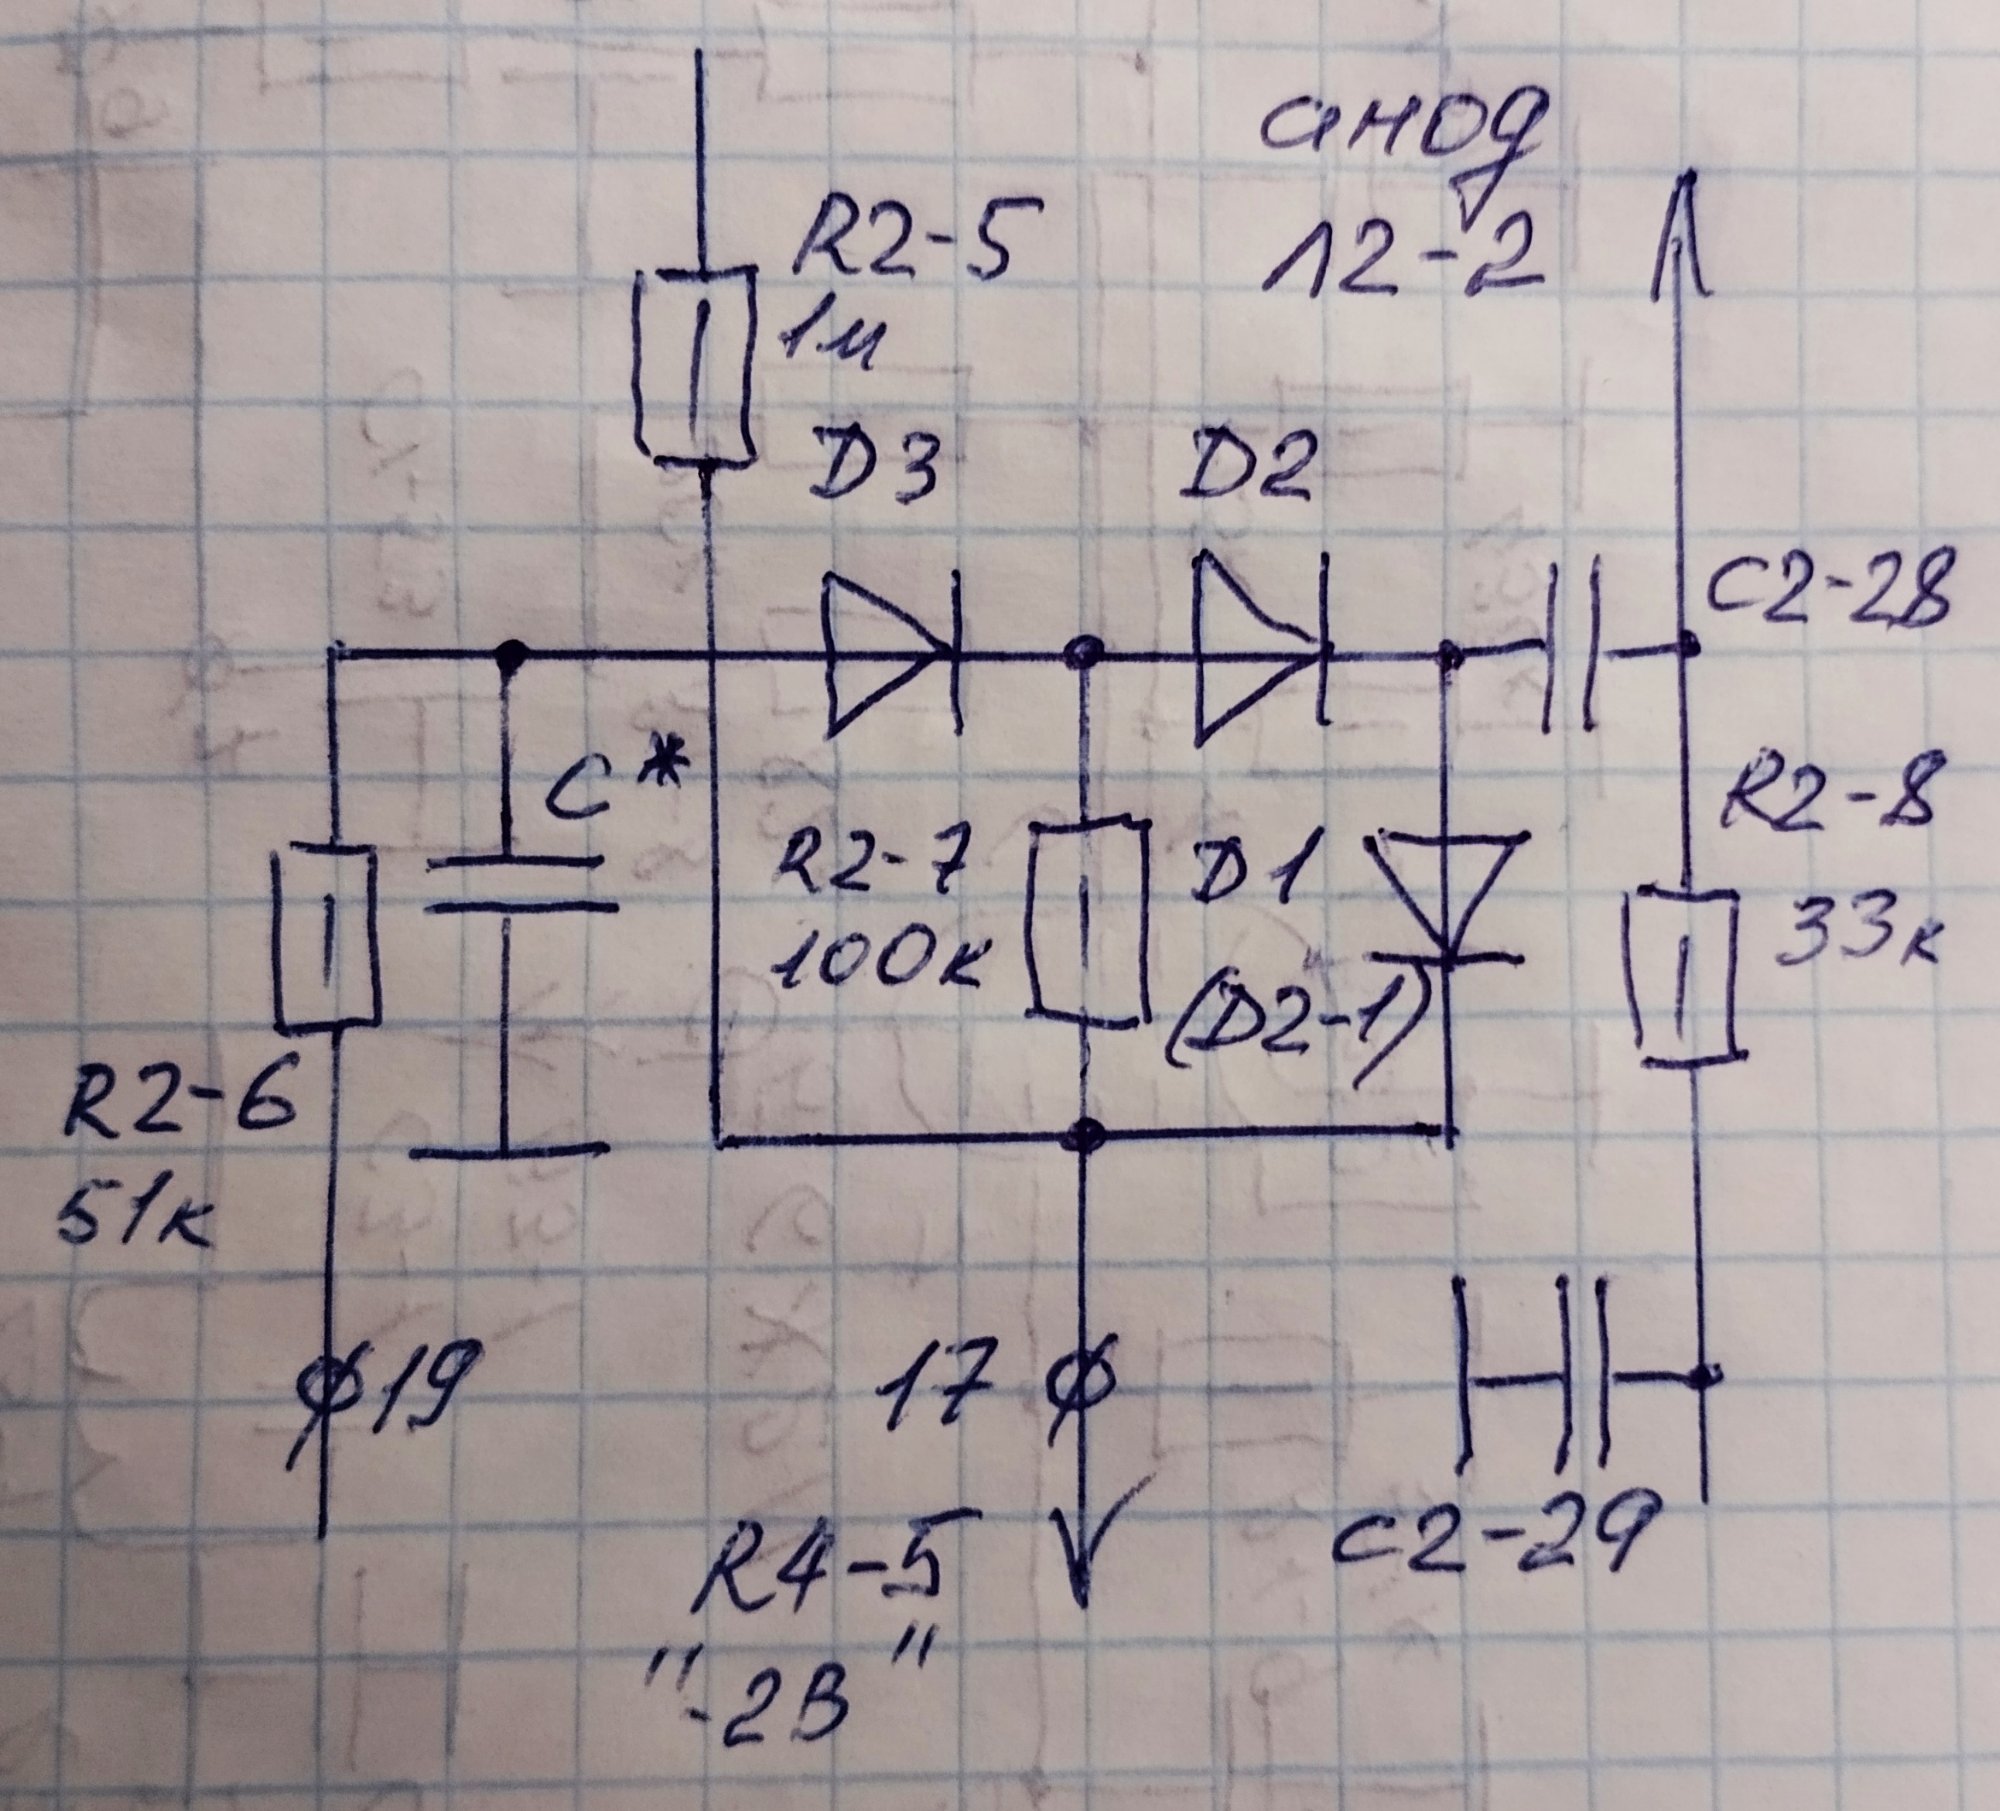 анод
Л2-2
R2-5
1м
D3
D2
C2-28
C*
R2-8
33к
R2-7
100к
D1
(D2-1)
R2-6
51к
19
17
C2-29
R4-5
"-2В"